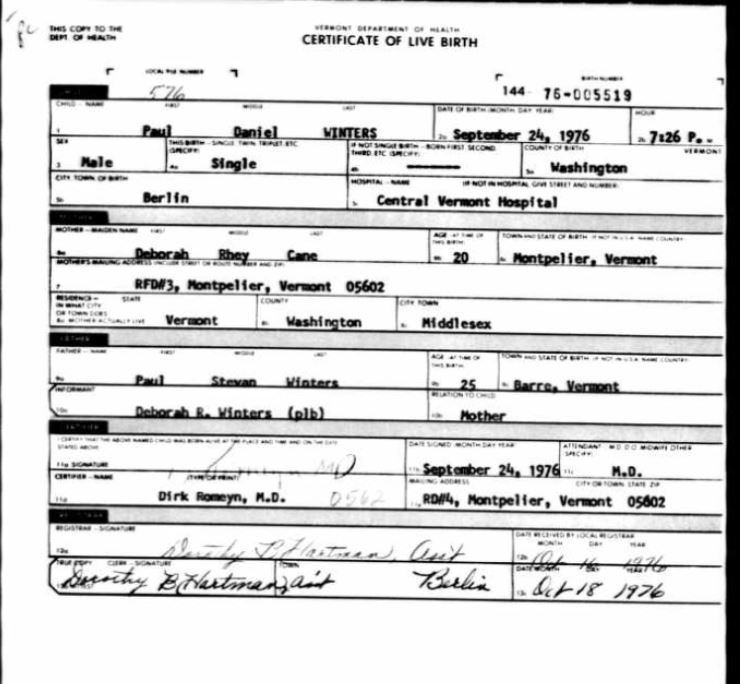 THIS COPY TO THE
DEPT. OF HEALTH
VERMONT DEPARTMENT OF HEALTH
CERTIFICATE OF LIVE BIRTH
LOCAL FILE NUMBER
576
BIRTH NUMBER
144- 76-005519
CHILD - NAME FIRST MIDDLE LAST
DATE OF BIRTH (MONTH, DAY, YEAR)
HOUR
1 Paul Daniel WINTERS
2a September 24, 1976
2b 7:26 P. M
SEX
THIS BIRTH - SINGLE, TWIN, TRIPLET, ETC. (SPECIFY)
IF NOT SINGLE BIRTH - BORN FIRST, SECOND, THIRD, ETC. (SPECIFY)
COUNTY OF BIRTH
VERMONT
3 Male
4a Single
4b
5a Washington
CITY, TOWN OF BIRTH
HOSPITAL - NAME (IF NOT IN HOSPITAL, GIVE STREET AND NUMBER)
5b Berlin
5c Central Vermont Hospital
MOTHER
MOTHER - MAIDEN NAME FIRST MIDDLE LAST
AGE - AT TIME OF THIS BIRTH
TOWN AND STATE OF BIRTH - IF NOT IN U.S.A. NAME COUNTRY
6a Deborah Rhey Cane
6b 20
6c Montpelier, Vermont
MOTHER'S MAILING ADDRESS (INCLUDE STREET OR ROUTE NUMBER AND ZIP)
7 RFD#3, Montpelier, Vermont 05602
RESIDENCE - STATE
IN WHAT CITY
OR TOWN DOES
8a MOTHER ACTUALLY LIVE Vermont
COUNTY
8b Washington
CITY, TOWN
8c Middlesex
FATHER
FATHER - NAME FIRST MIDDLE LAST
AGE - AT TIME OF THIS BIRTH
TOWN AND STATE OF BIRTH - IF NOT IN U.S.A. NAME COUNTRY
9a Paul Stevan Winters
9b 25
9c Barre, Vermont
INFORMANT
RELATION TO CHILD
10a Deborah R. Winters (plb)
10b Mother
CERTIFIER
I CERTIFY THAT THE ABOVE NAMED CHILD WAS BORN ALIVE AT THE PLACE AND TIME AND ON THE DATE
STATED ABOVE
DATE SIGNED (MONTH, DAY, YEAR)
ATTENDANT - M.D., D.O., MIDWIFE, OTHER (SPECIFY)
11a SIGNATURE Romeyn MD
11b September 24, 1976
11c M.D.
CERTIFIER - NAME (TYPE OR PRINT)
MAILING ADDRESS CITY OR TOWN, STATE, ZIP
11d Dirk Romeyn, M.D. 0562
11e RD#4, Montpelier, Vermont 05602
REGISTRAR
REGISTRAR - SIGNATURE
DATE RECEIVED BY LOCAL REGISTRAR
MONTH DAY YEAR
12a Dorothy B Hartman, Ass't
12b Oct 16 1976
TRUE COPY CLERK - SIGNATURE
TOWN
DATE MONTH DAY YEAR
Dorothy B Hartman, ass't
Berlin
13c Oct 18 1976